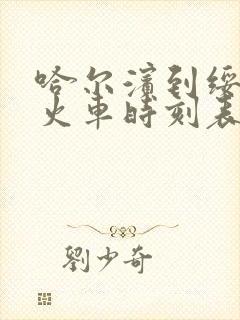 哈尔滨到绥
火车時刻表
劉少奇